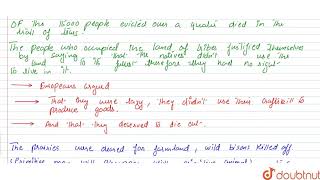 OF the 15000 people evicted over a quater died in the
trail of tears.
The people who occupied the land of tribes justified themselves
by saying that the natives didn't use the
land to its fullest therefore they had no right
to live in it.
→ Europeans argued
→ That they were lazy, they didn't use their craft skill to
produce goods.
→ And that they deserved to die out.
The prairies were cleared for farmland, wild bisons killed off.
doubtnut